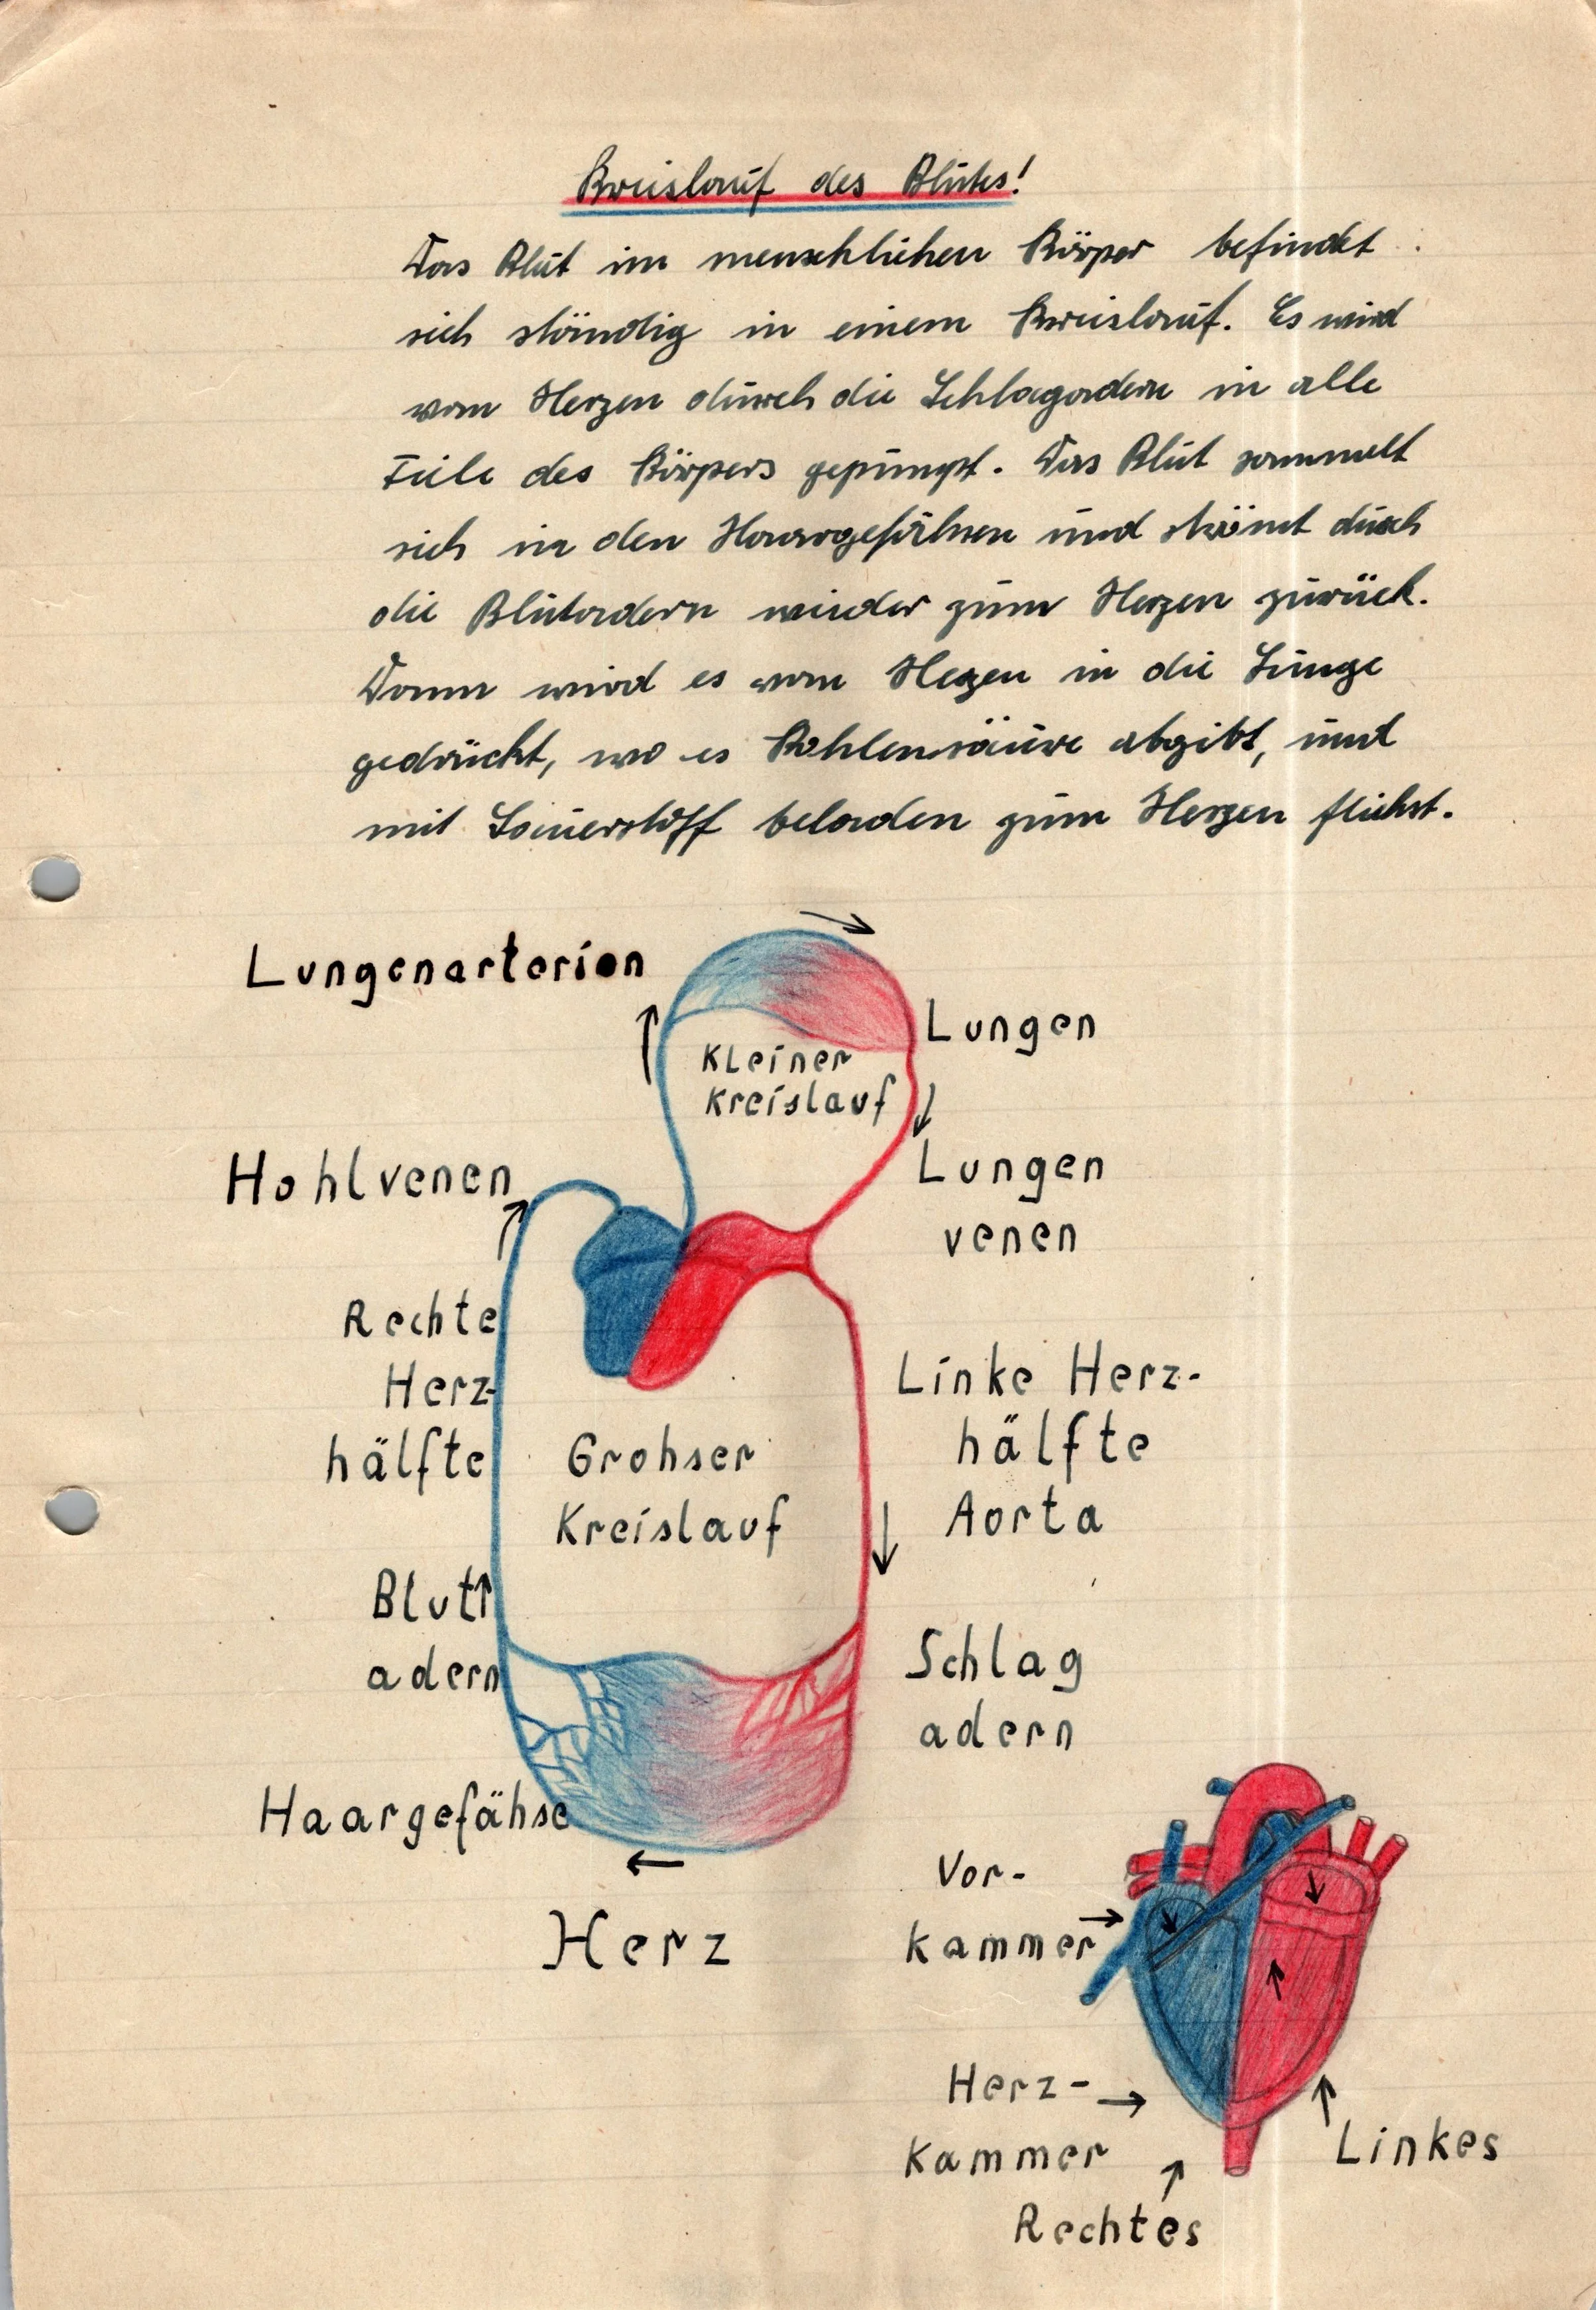 Kreislauf des Blutes!
Das Blut im menschlichen Körper befindet
sich ständig in einem Kreislauf. Es wird
vom Herzen durch die Schlagadern in alle
Teile des Körpers gepumpt. Das Blut sammelt
sich in den Haargefähsen und strömt durch
die Blutadern wieder zum Herzen zurück.
Dann wird es vom Herzen in die Lunge
gedrückt, wo es Kohlensäure abgibt, und
mit Sauerstoff beladen zum Herzen fliehst.
Lungenarterien
Lungen
Kleiner
Kreislauf
Hohlvenen
Lungen
venen
Rechte
Herz-
hälfte
Linke Herz-
hälfte
Aorta
Grohser
Kreislauf
Blut
adern
Schlag
adern
Haargefähse
Herz
Vor-
kammer
Herz-
Kammer
Linkes
Rechtes